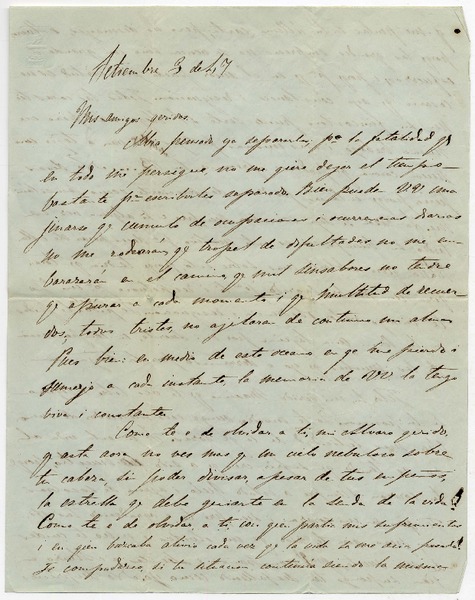 Setiembre 3 de 47
Mis amigos queridos.
Abia pensado ya separarlas, pº la fatalidad q
en todo me persigue, no me quiso dejar el tiempo
basta te pª escribirles separado. Bien pueden VV ima
jinarse q cumulo de ocupaciones i ocurrencias diarias
no me rodearán, q tropel de dificultades no me em
barazarán en el camino, q mil sinsabores no tendre
q apurar a cada momento i q multitud de recuer
dos, todos tristes, no ajitaran de continuo mi alma
Pues bien: en medio de este oceano en q me pierdo i
sumerjo a cada instante, la memoria de VV la tengo
viva i constante.
Como te e de olvidar a ti, mi Alvaro querido,
q asta aora no ves mas q un cielo nebuloso sobre
tu cabeza, sin poder divisar, apesar de tus empeños,
la estrella q debe guiarte en la senda de la vida?
Como te e de olvidar a ti, con quien partia mis sufrimientos
i en quien buscaba alivio cada vez q la vida se me acia pesada?
Te compadezco, si tu situacion continua siendo la misma